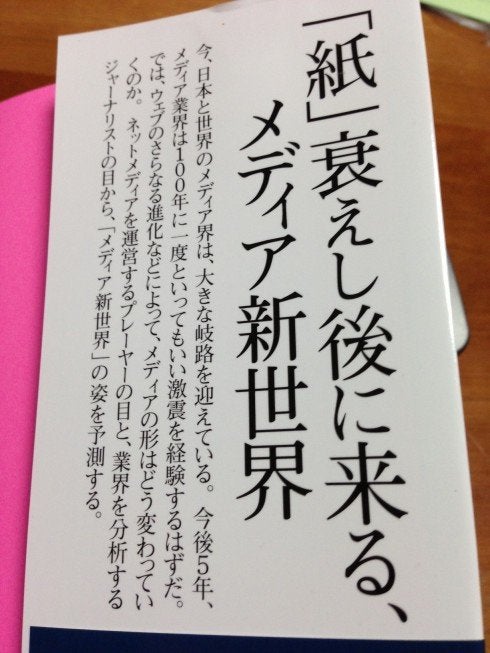 「紙」衰えし後に来る、
メディア新世界
今、日本と世界のメディア界は、大きな岐路を迎えている。 今後5年、
メディア業界は100年に一度といってもいい激震を経験するはずだ。
では、ウェブのさらなる進化などによって、メディアの形はどう変わってい
くのか。 ネットメディアを運営するプレーヤーの目と、業界を分析する
ジャーナリストの目から、「メディア新世界」の姿を予測する。